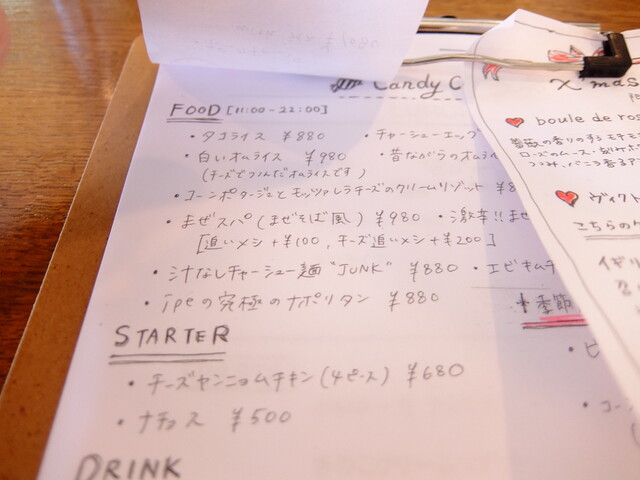 Candy C
FOOD [11:00-22:00]
・タコライス ¥880 ・チャーシューエッグ
・白いオムライス ¥980 ・昔ながらのオムライ
(チーズでつつんだオムライスです)
・コーンポタージュとモッツァレラチーズのクリームリゾット ¥8
・まぜスパ(まぜそば風) ¥980 ・激辛!!まぜ
[追いメシ+¥100, チーズ追いメシ+¥200]
・汁なしチャーシュー麺"JUNK" ¥880 ・エビキムチ
・ipeの究極のナポリタン ¥880
季節
STARTER
・チーズヤンニョムチキン(4ピース) ¥680
・ナチョス ¥500
DRINK
X'mas
boule de ros
薔薇の香りのする
ローズのムース
ヴィクト
こちらの
イギリ